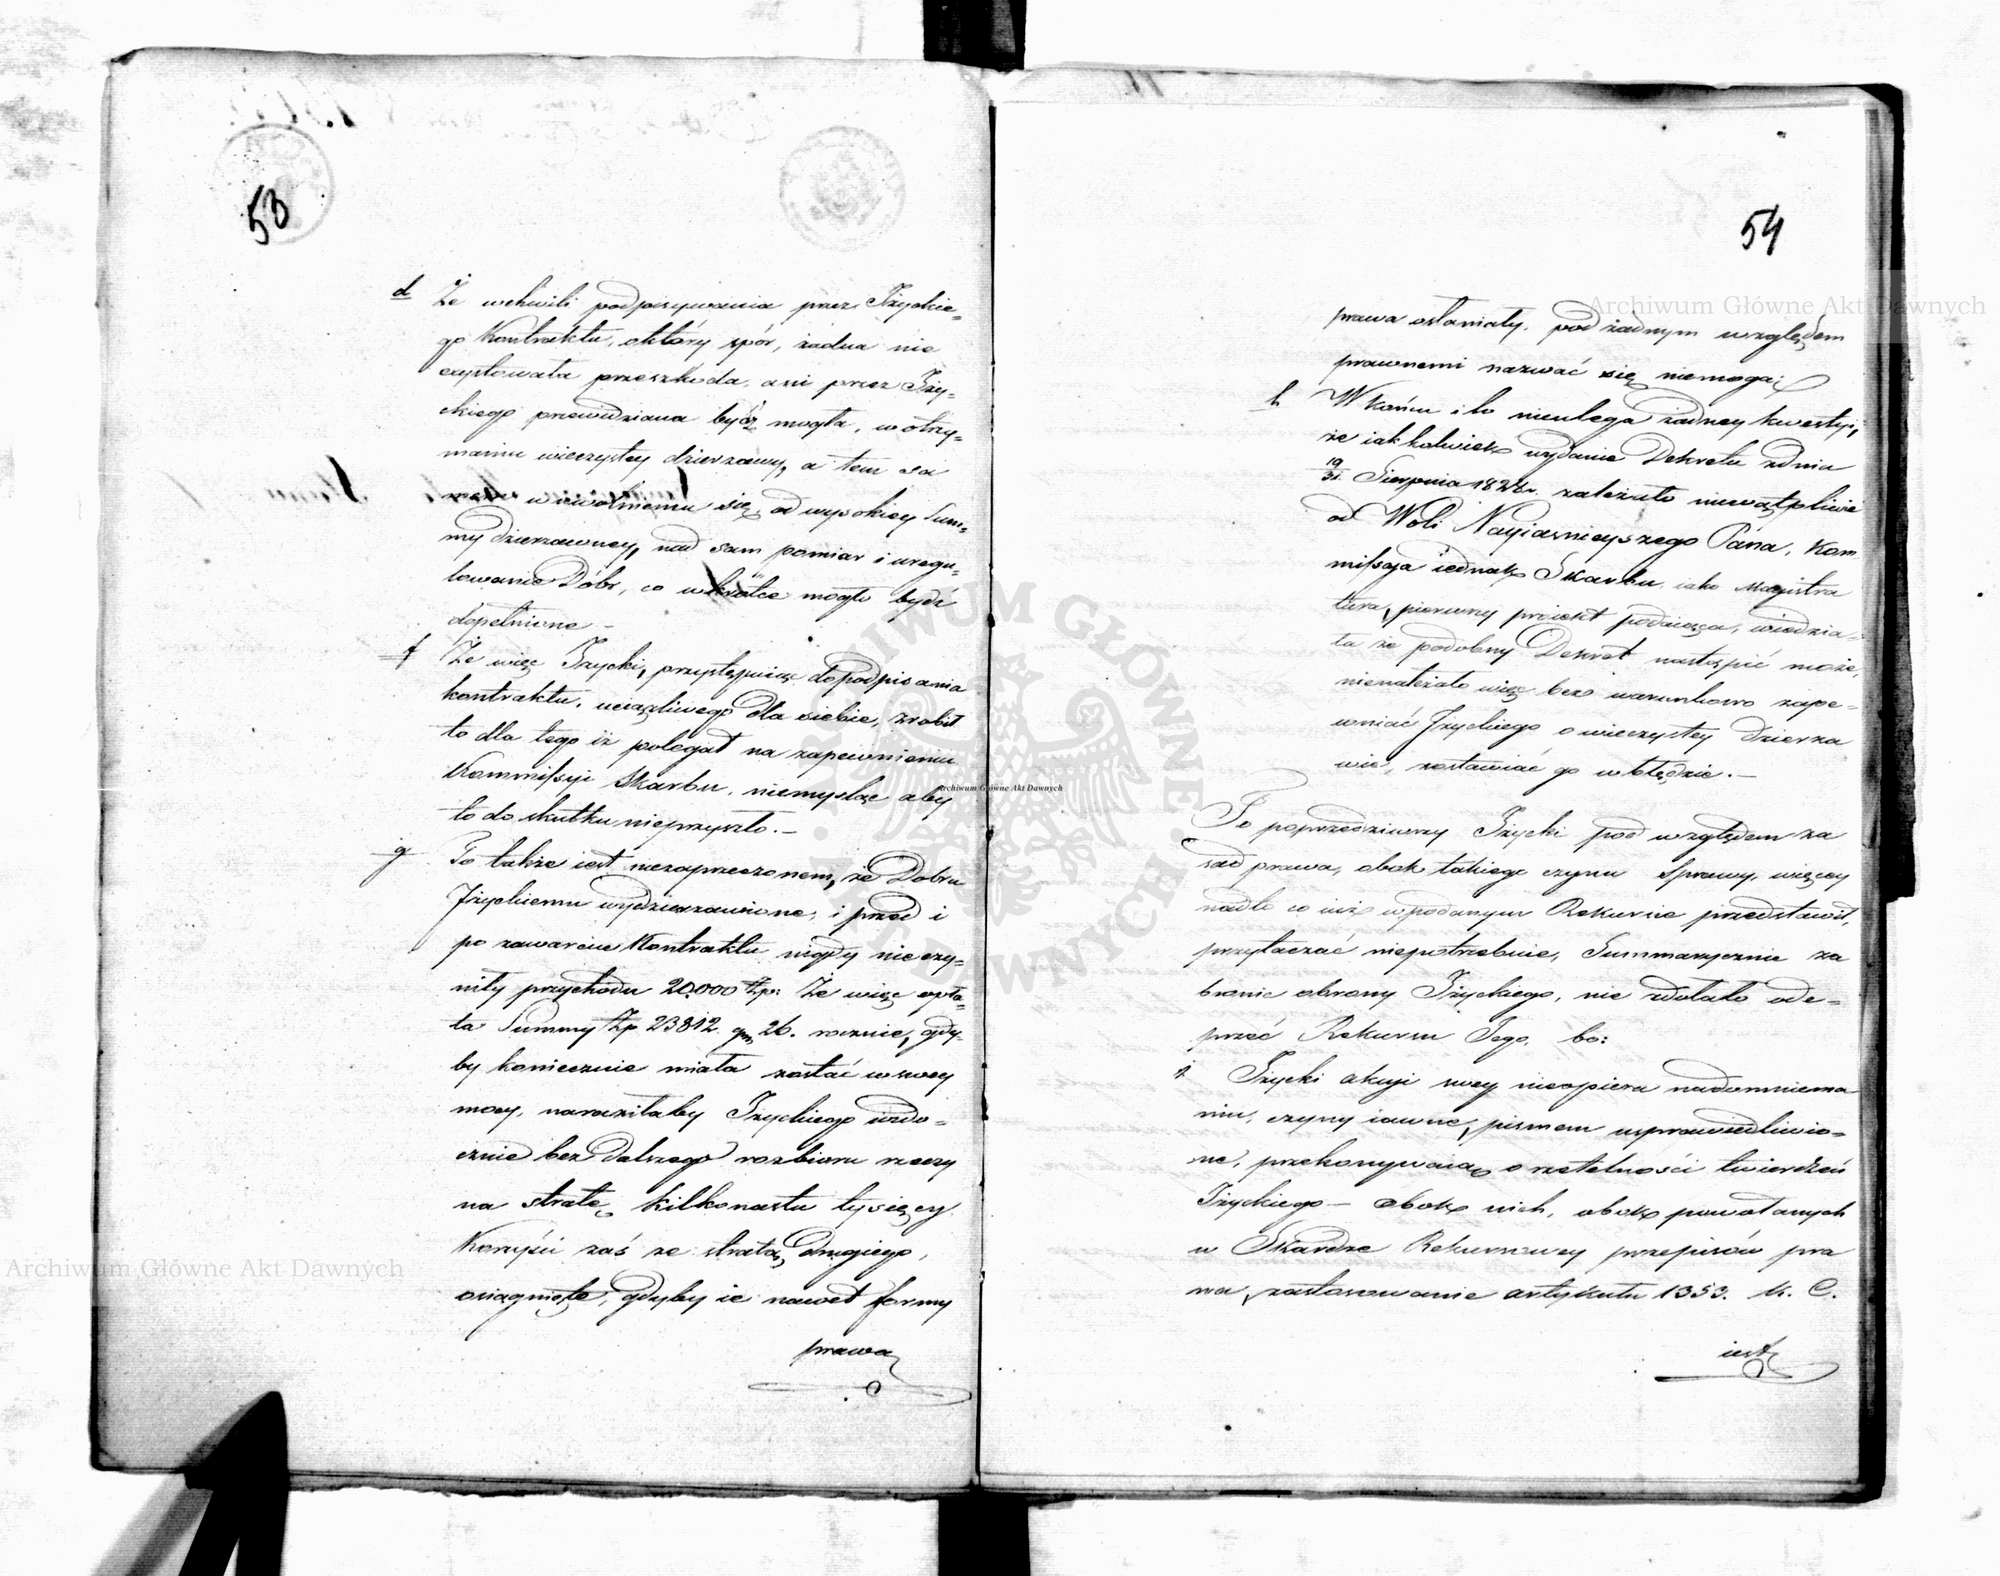 53
d Że wchwili podpisywania przez Iżyckie=
go Kontraktu, októry spór, żadna nie
exystowała przeszkoda, ani przez Iży=
ckiego przewidziana być mogła, w otrzy=
maniu wieczystey dzierzawy, a tem sa
mem uwolnieniu się, od wysokiey Sum=
my dzierzawney, nad sam pomiar i uregu=
lowanie Dóbr, co wkrótce mogło bydź
dopełnione –
f Że więc Iżycki, przystępuiąc do podpisania
kontraktu, uciążliwego dla siebie, zrobił
to dla tego iż polegał na zapewnieniu
Kommissyi Skarbu, niemysląc aby
to do skutku nieprzyszło. –
g To także iest niezaprzeczonem, że Dobra
Iżyckiemu wydzierzawione, i przed i
po zawarciu Kontraktu nigdy nie czy=
niły przychodu 20,000 Złp: Że więc opła=
ta Summy Złp 23812 gr 26. rocznie, gdy=
by koniecznie miała zostać w swey
mocy, naraziłaby Iżyckiego wido=
cznie bez dalszego rozbioru rzeczy
na stratę kilkonastu tysięcy.
Korzyści zaś ze stratą drugiego,
osiągnięte, gdyby ie nawet formy
prawa
54
prawa osłaniały, pod żadnym względem
prawnemi nazwać się niemogą;
h W końcu i to nieulega żadney kwestyi,
że iakkolwiek wydanie Dekretu zdnia
19/31 Sierpnia 1828r. zależało niewątpliwie
od Woli Nayiasnieyszego Pána, Kom
missya iednak Skarbu iako Magistra
tura, pierwszy proiekt podaiąca, wiedzia=
ła że podobny Dekret nastąpić może,
nienależało więc bezwarunkowo zape=
wniać Iżyckiego o wieczystey dzierza
wie, zostawiać go w błędzie. –
To poprzedziwszy Iżycki pod względem za
sad prawa, obok takiego czynu Sprawy, więcey
nadto co iuż wpodanym Rekursie przedstawił,
przytaczać niepotrzebuie, Summarycznie za
branie obrony Iżyckiego, nie zdołało ode=
przeć Rekursu Jego, bo:
1. Iżycki akcyi swey nieopiera nadomniema
niu, czyny iawne, pismem usprawiedliwio=
ne, przekonywaią o rzetelności twierdzeń
Iżyckiego – obok nich, obok powołanych
w Skardze Rekursowey przepisów pra
wa, zastosowanie artykułu 1353. K. C.
iest
Archiwum Główne Akt Dawnych
Archiwum Główne Akt Dawnych
Archiwum Główne Akt Dawnych
ARCHIWUM GŁÓWNE AKT DAWNYCH